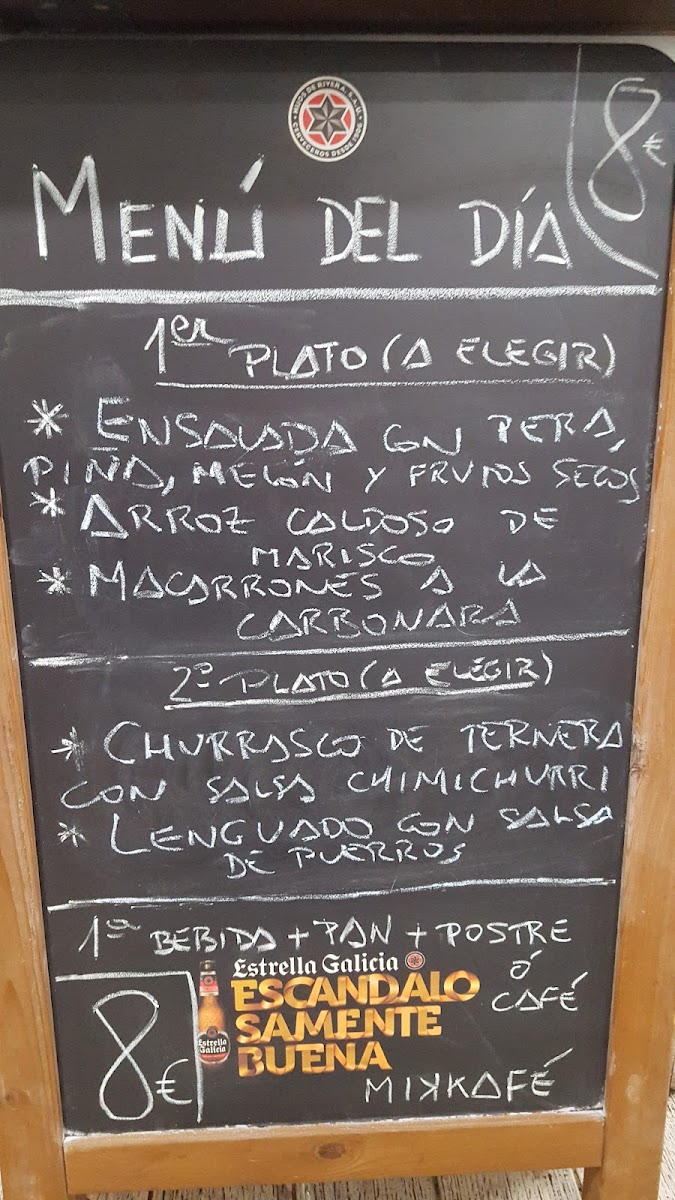 HIJOS DE RIVERA, S.A.U.
CERVECEROS DESDE 1906
8€
MENÚ DEL DÍA
1er PLATO (A ELEGIR)
* ENSALADA CON PERA,
PIÑA, MELÓN Y FRUTOS SECOS
* ARROZ CALDOSO DE
MARISCO
* MACARRONES A LA
CARBONARA
2º PLATO (A ELEGIR)
* CHURRASCO DE TERNERA
CON SALSA CHIMICHURRI
* LENGUADO CON SALSA
DE PUERROS
1ª BEBIDA + PAN + POSTRE
Ó
CAFÉ
8€
Estrella Galicia
ESCANDALO
SAMENTE
BUENA
Estrella
Galicia
MIKKAFÉ